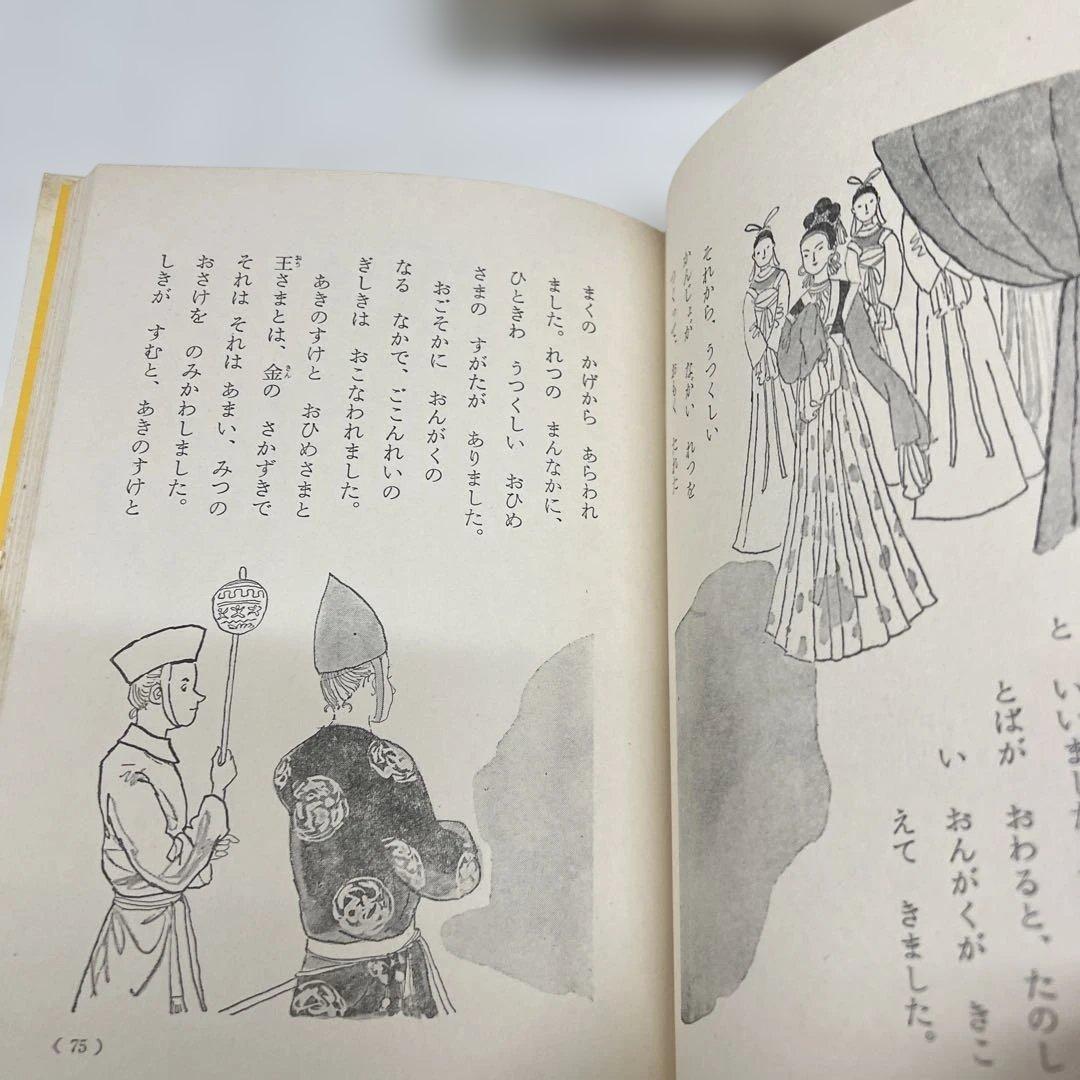 と いいました
とばが おわると、たのし
い おんがくが きこ
えて きました。
それから、うつくしい
かんじょが ながい れつを
おもく たれた
まくの かげから あらわれ
ました。れつの まんなかに、
ひときわ うつくしい おひめ
さまの すがたが ありました。
おごそかに おんがくの
なる なかで、ごこんれいの
ぎしきは おこなわれました。
あきのすけと おひめさまと
王さまとは、金の さかずきで
それは それは あまい、みつの
おさけを のみかわしました。
しきが すむと、あきのすけと
( 75 )